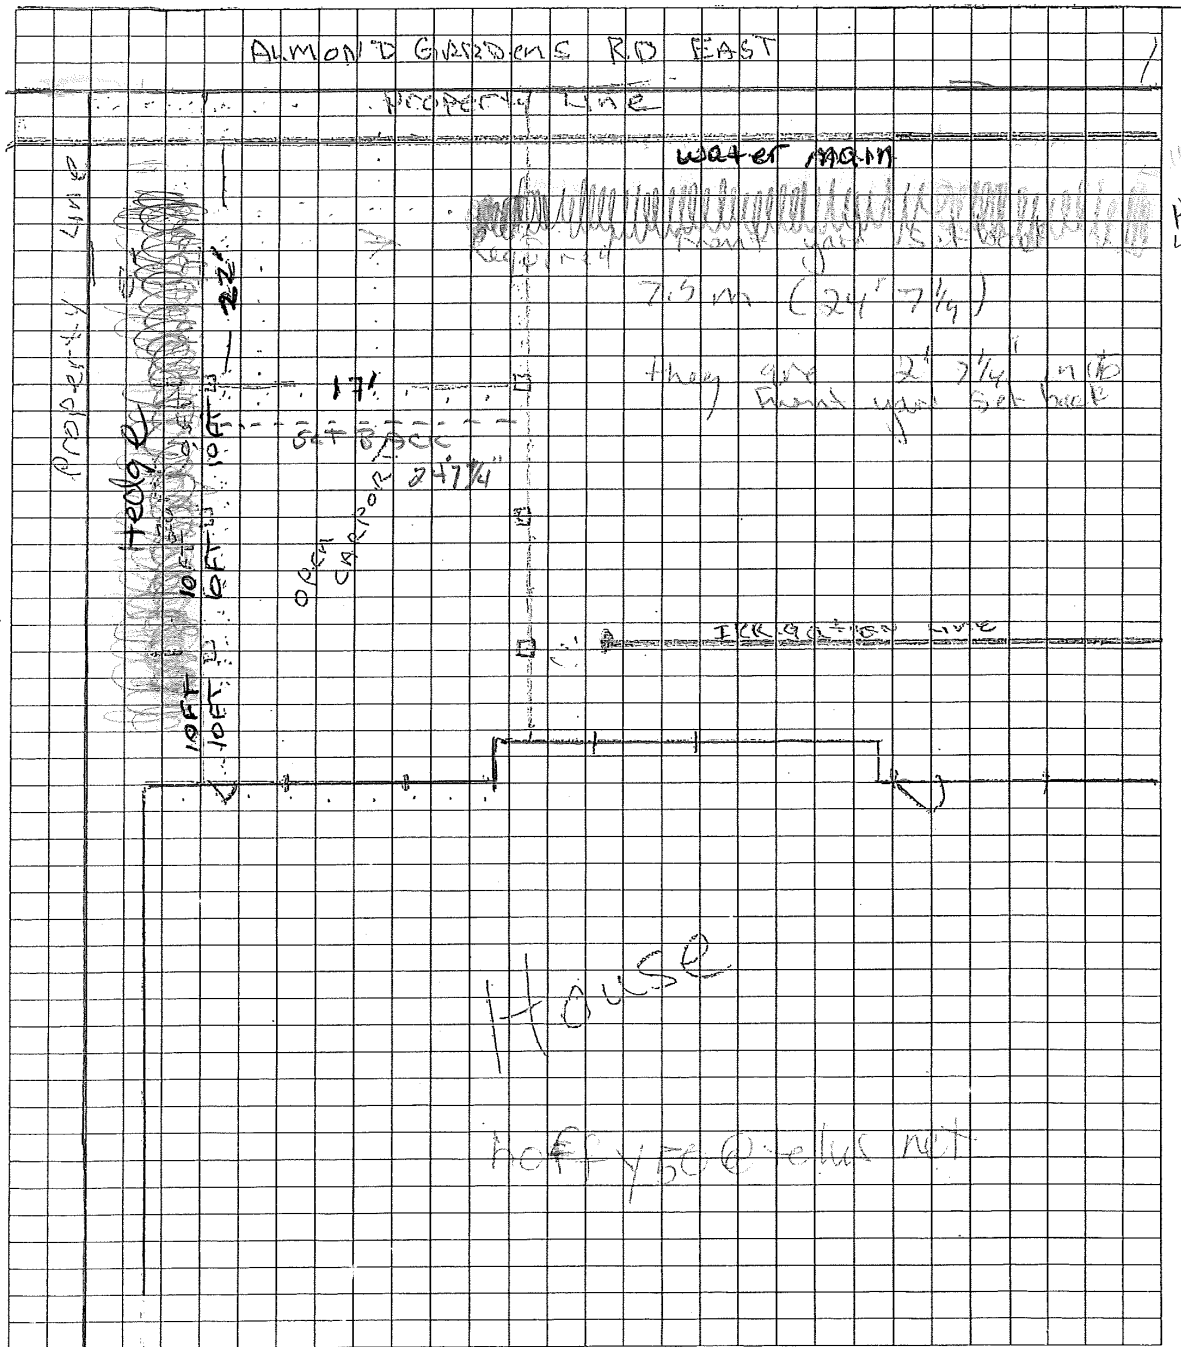 ALMOND GARDENS RD EAST
Property Line
water main
Property Line
Hedge
22'
Required Front yard Setback
7.5 m (24' 7 1/4)
they are 2' 7 1/4" into
Front yard Set back
17'
SET BACK
24'7 1/4"
OPEN
CARPORT
10FT
10FT
10FT
10FT
10FT
IRRIGATION LINE
House